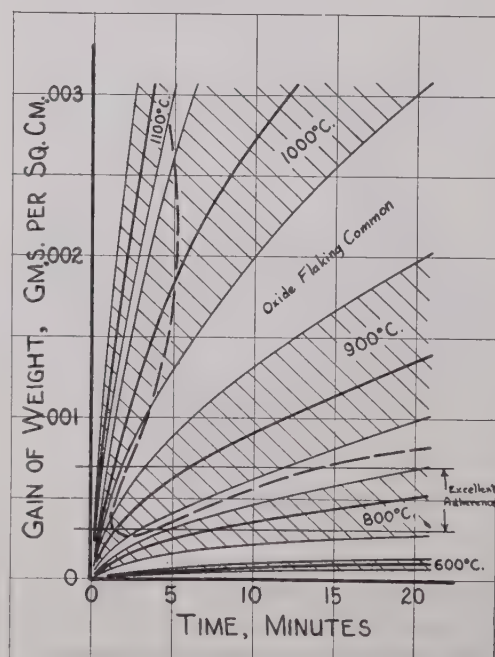 GAIN OF WEIGHT, GMS. PER SQ. CM.
.003
.002
.001
0
1100°C.
1000°C.
Oxide Flaking Common
900°C.
Excellent
Adherence
800°C.
600°C.
0
5
10
15
20
TIME, MINUTES